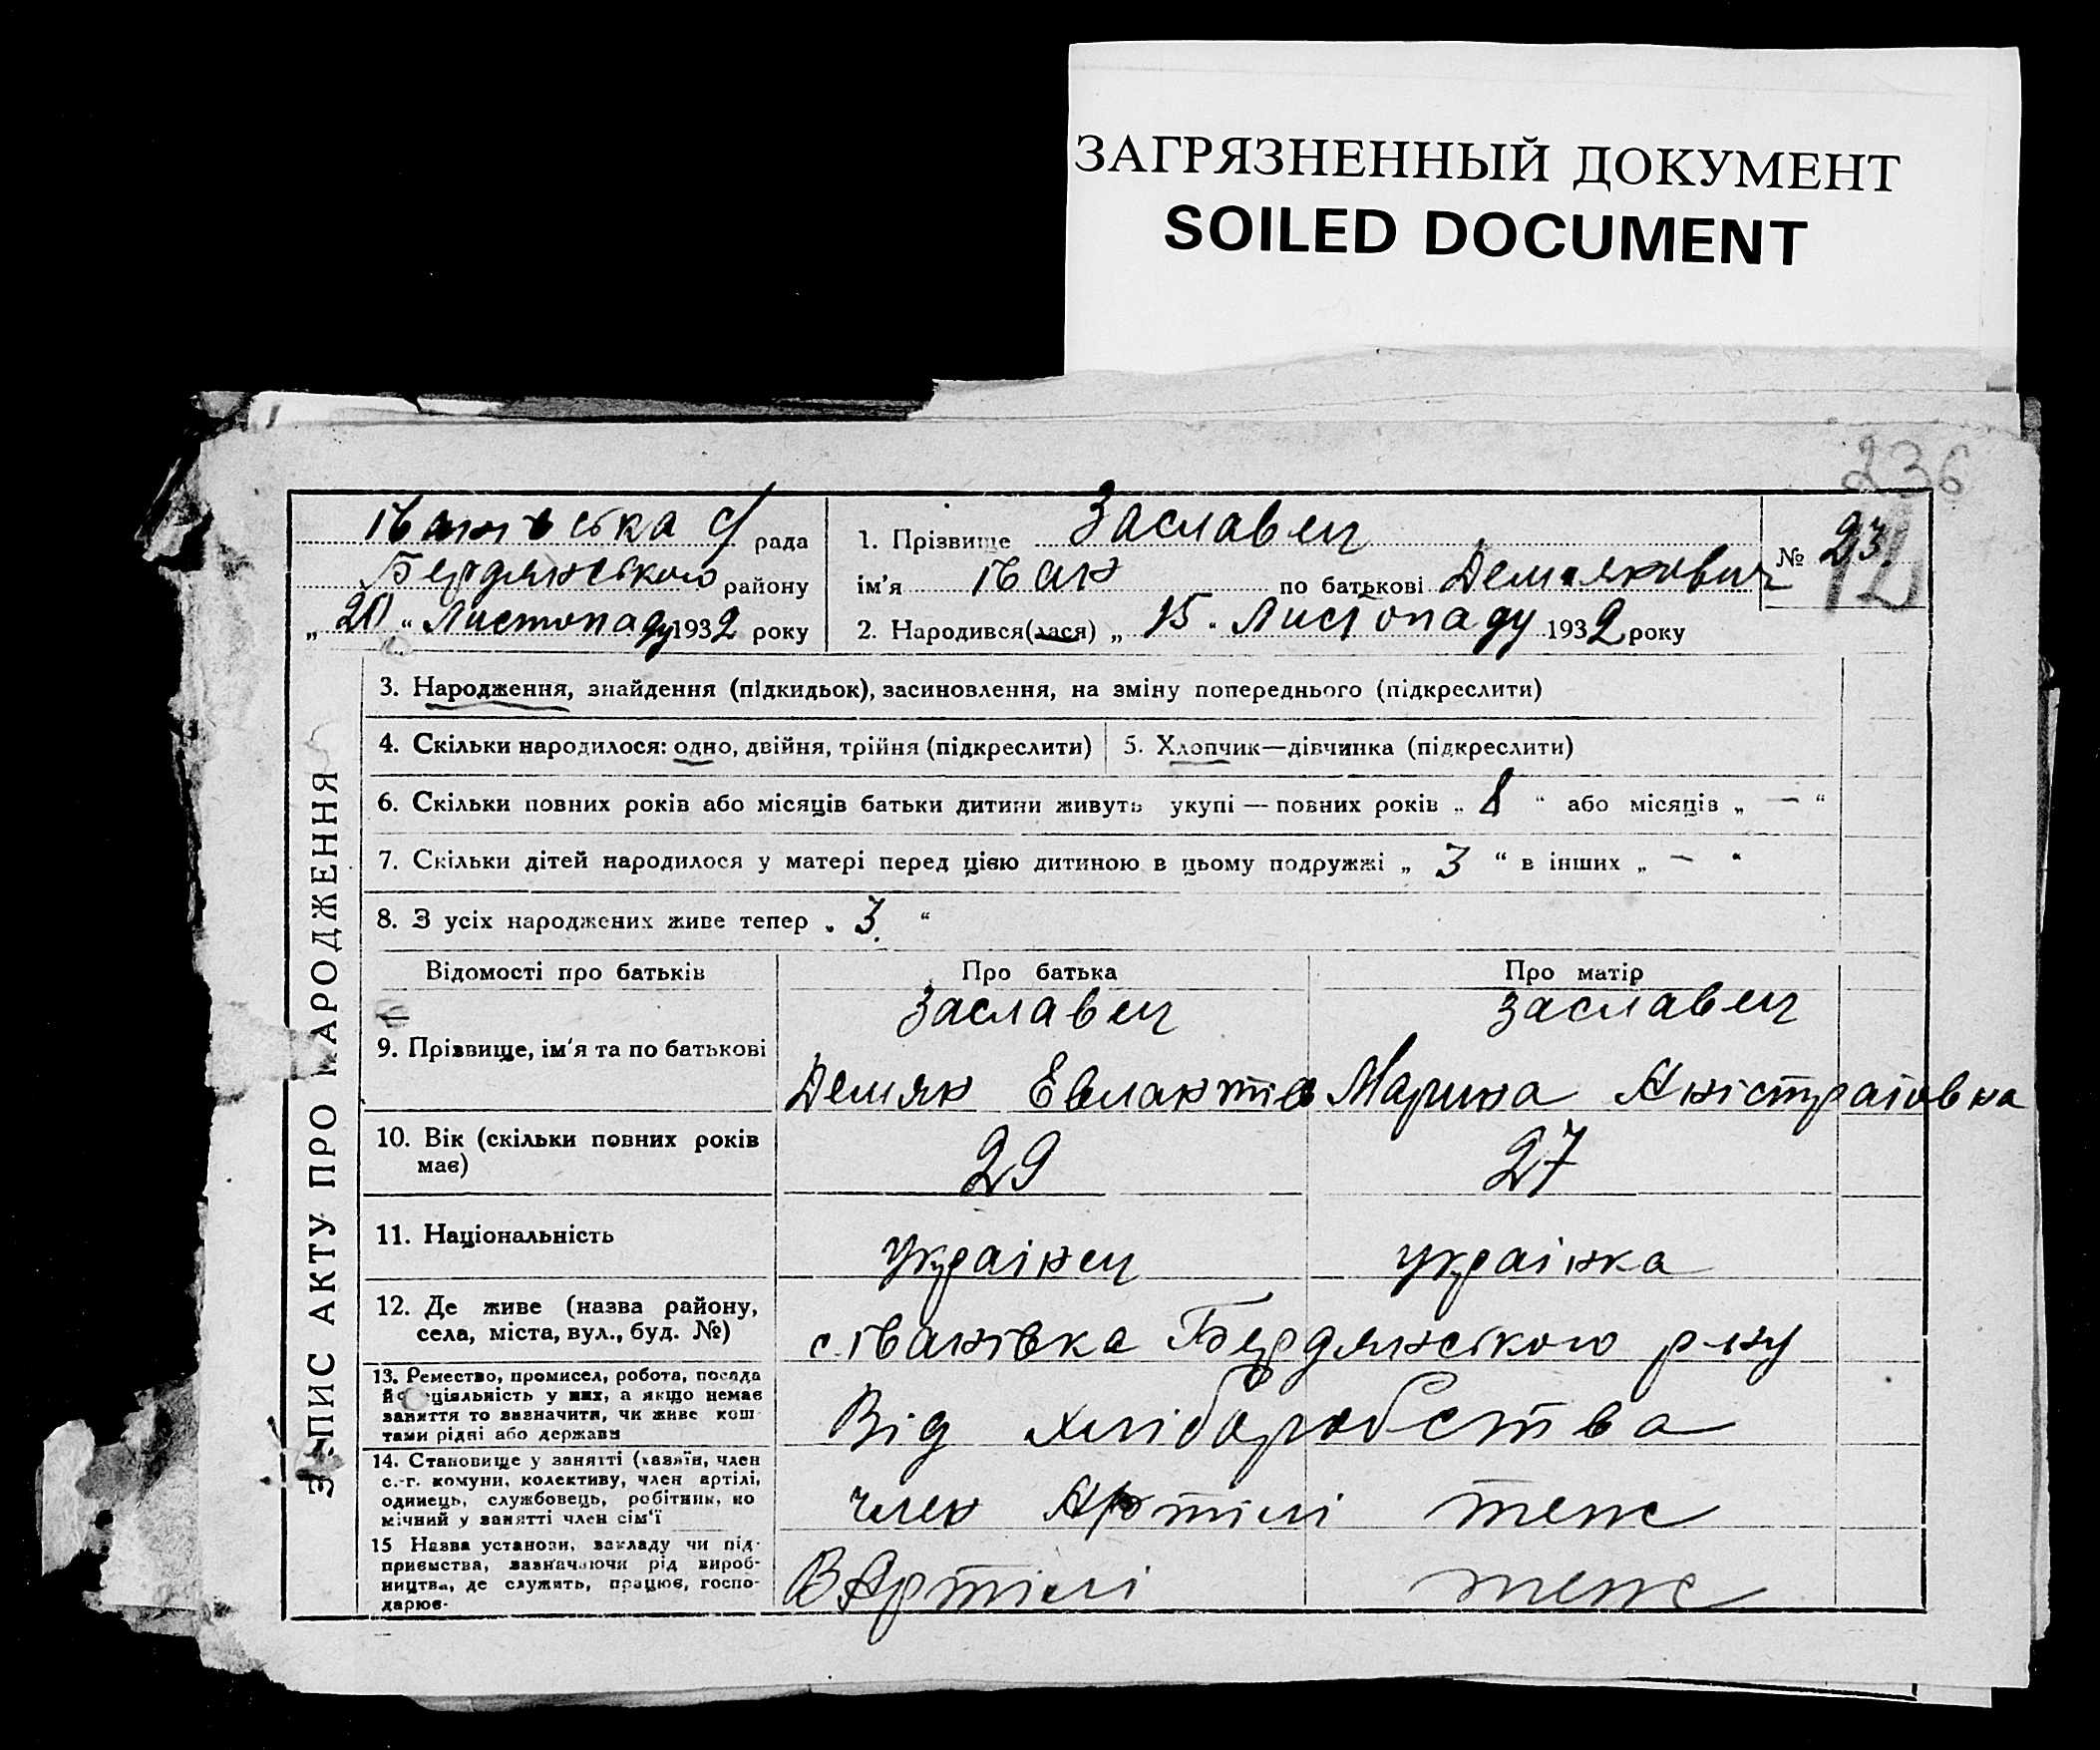 ЗАГРЯЗНЕННЫЙ ДОКУМЕНТ
SOILED DOCUMENT
236
Іванівська с/ рада
Бердянського району
„ 20 “ Листопаду 1932 року
1. Прізвище Заславец
ім'я Іван по батькові Демянович
2. Народився(лася) „ 15 “ Листопаду 1932 року
№ 23
12
ЗАПИС АКТУ ПРО НАРОДЖЕННЯ
3. Народження, знайдення (підкидьок), засиновлення, на зміну попереднього (підкреслити)
4. Скільки народилося: одно, двійня, трійня (підкреслити)
5. Хлопчик—дівчинка (підкреслити)
6. Скільки повних років або місяців батьки дитини живуть укупі — повних років „ 8 “ або місяців „ — “
7. Скільки дітей народилося у матері перед цією дитиною в цьому подружжі „ 3 “ в інших „ — “
8. З усіх народжених живе тепер „ 3 “
Відомості про батьків
Про батька
Про матір
9. Прізвище, ім'я та по батькові
Заславец
Демян
Заславец
Марина
10. Вік (скільки повних років
має)
29
27
11. Національність
українец
українка
12. Де живе (назва району,
села, міста, вул., буд. №)
с. Іванівка Бердянського р-ну
13. Ремество, промисел, робота, посада
й спеціяльність у них, а якщо немає
заняття то визначити, чи живе кош
тами рідні або держави
Від хліборобства
14. Становище у занятті (хазяїн, член
с.-г. комуни, колективу, член артілі,
одинець, службовець, робітник, по
мічний у занятті член сім'ї
член Артілі
теж
15 Назва установи, закладу чи під-
приємства, зазначаючи рід вироб-
ництва, де служить, працює, госпо-
дарює.
В Артілі
теж